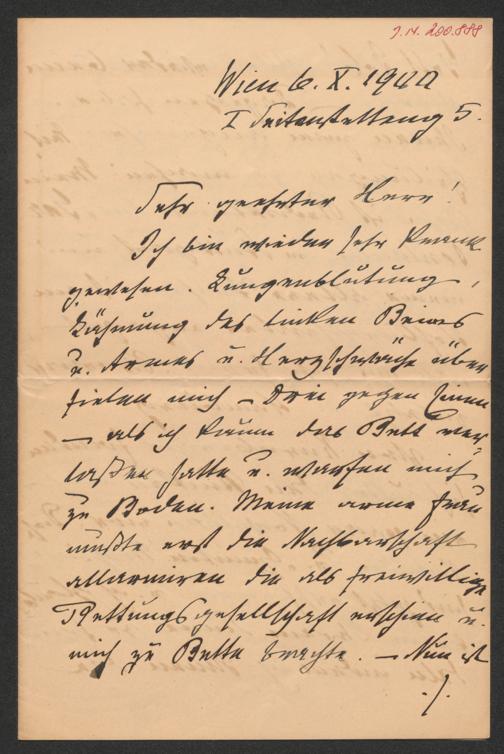 J.N. 200.888
Wien 6. X. 1900
I Seitenstetteng 5.
Sehr geehrter Herr!
Ich bin wieder sehr krank
gewesen. Lungenblutung,
Lähmung des linken Beines
u. Armes u. Herzschwäche über
fielen mich – Drei gegen Einen
– als ich kaum das Bett ver-
laßen hatte u. warfen mich
zu Boden. Meine arme Frau
mußte erst die Nachbarschaft
allarmiren die als freiwillige
Rettungsgesellschaft erschien u.
mich zu Bette brachte. – Nun ist
./.